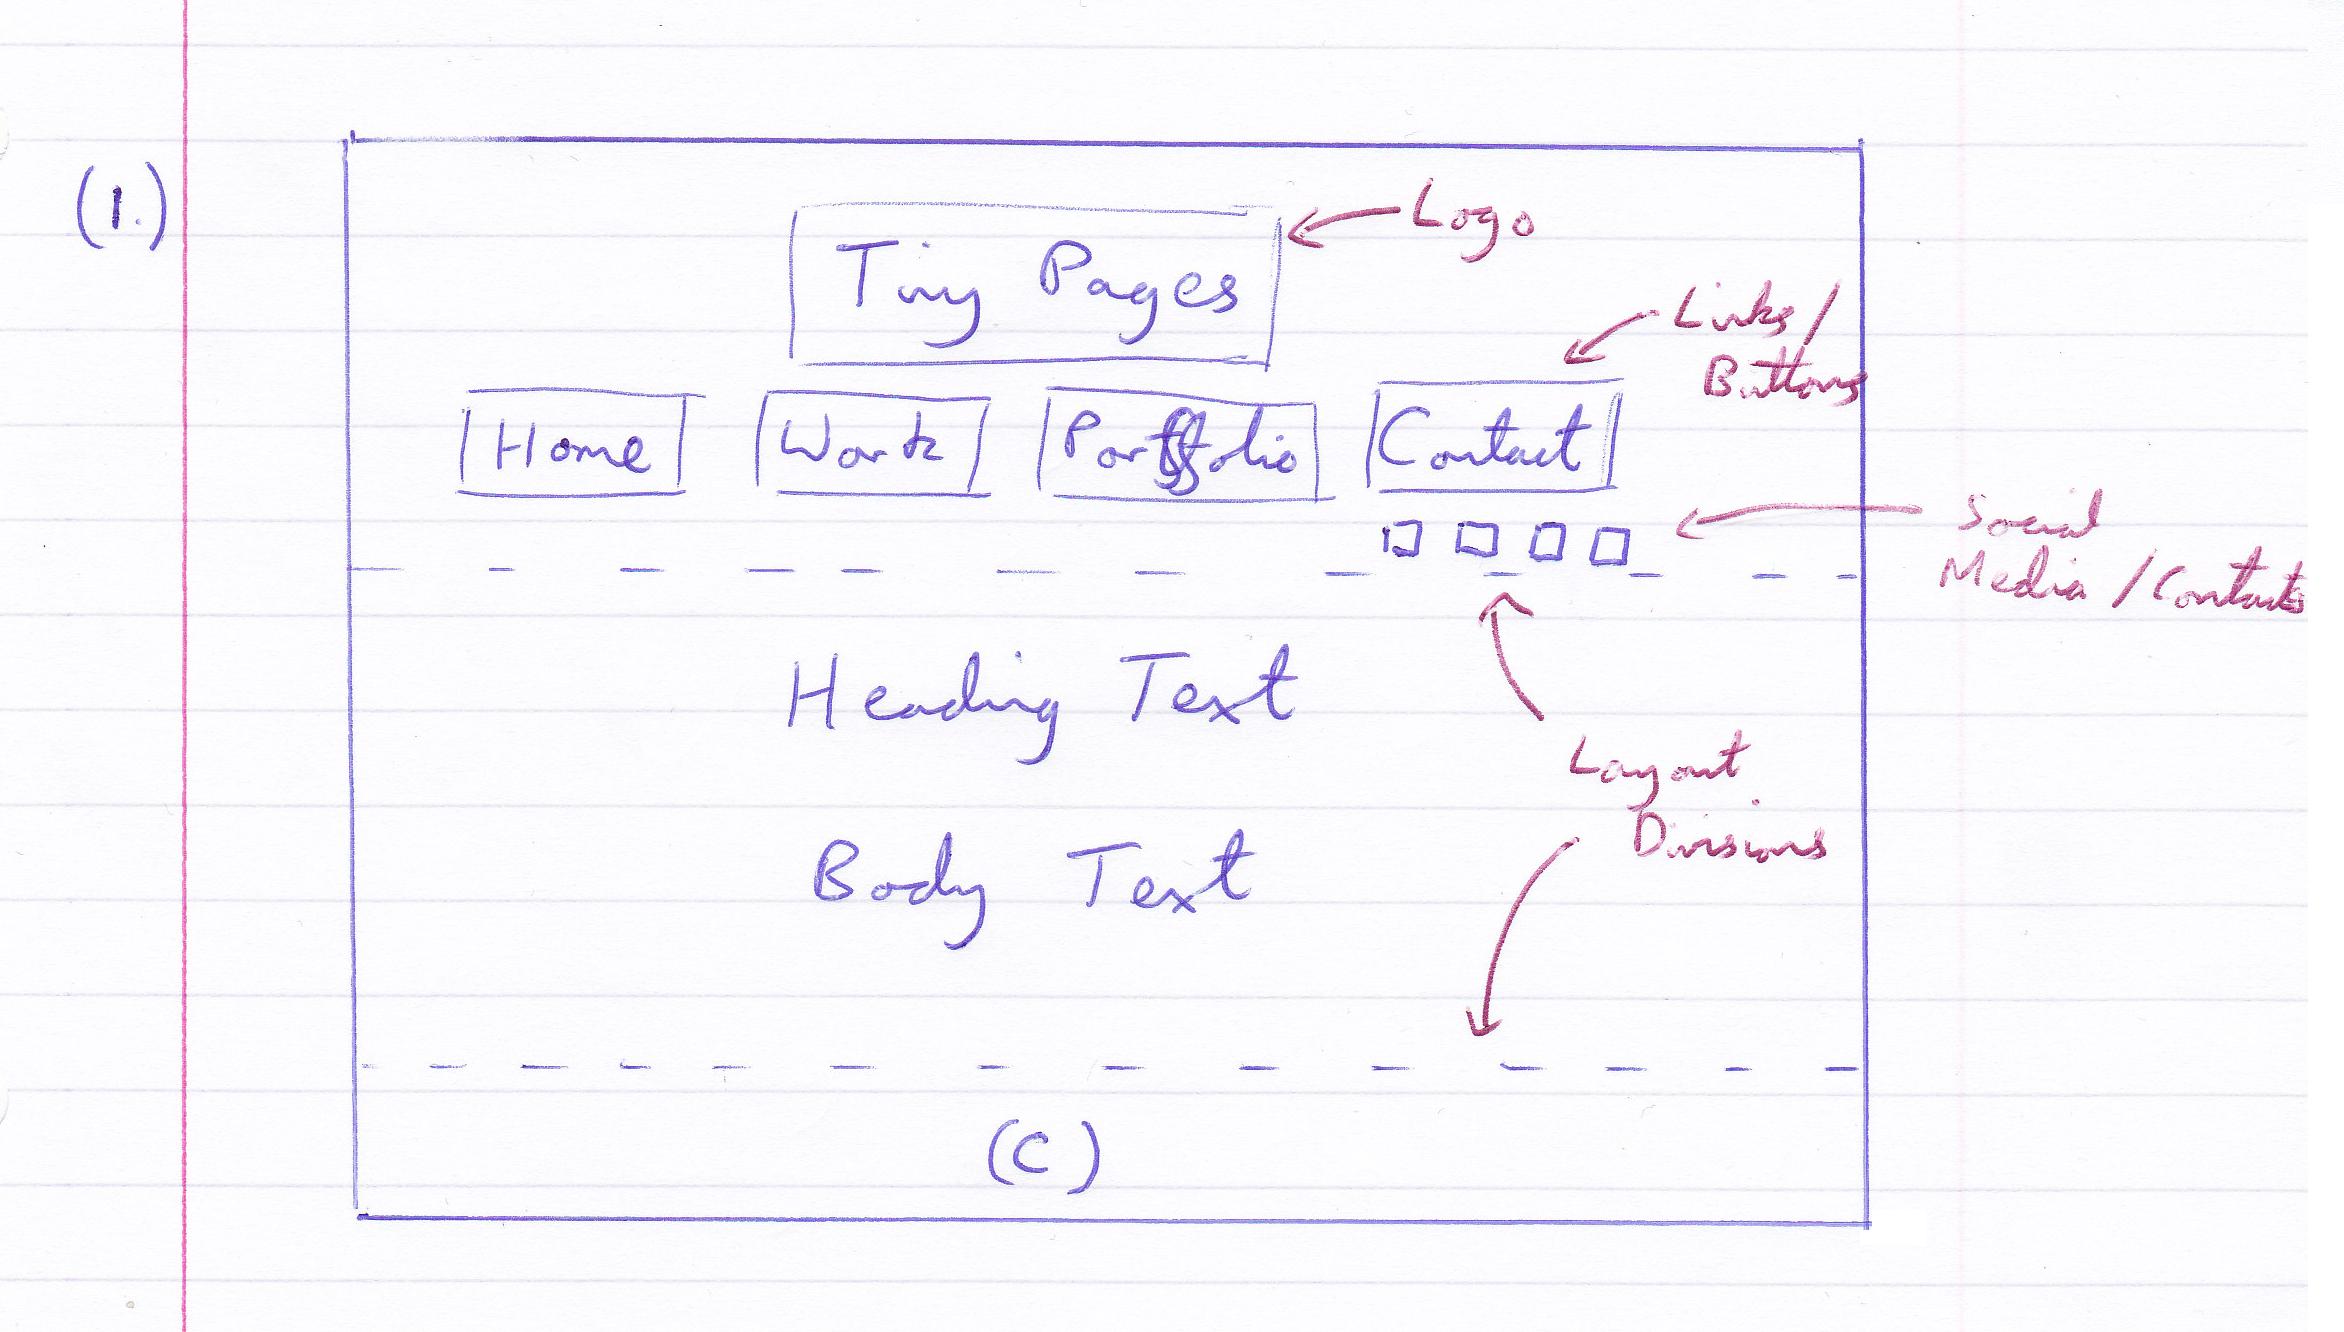 (1.)
Tiny Pages
Logo
Links/
Buttons
Home Work Portfolio Contact
Social
Media/Contacts
Heading Text
Layout
Divisions
Body Text
(C)